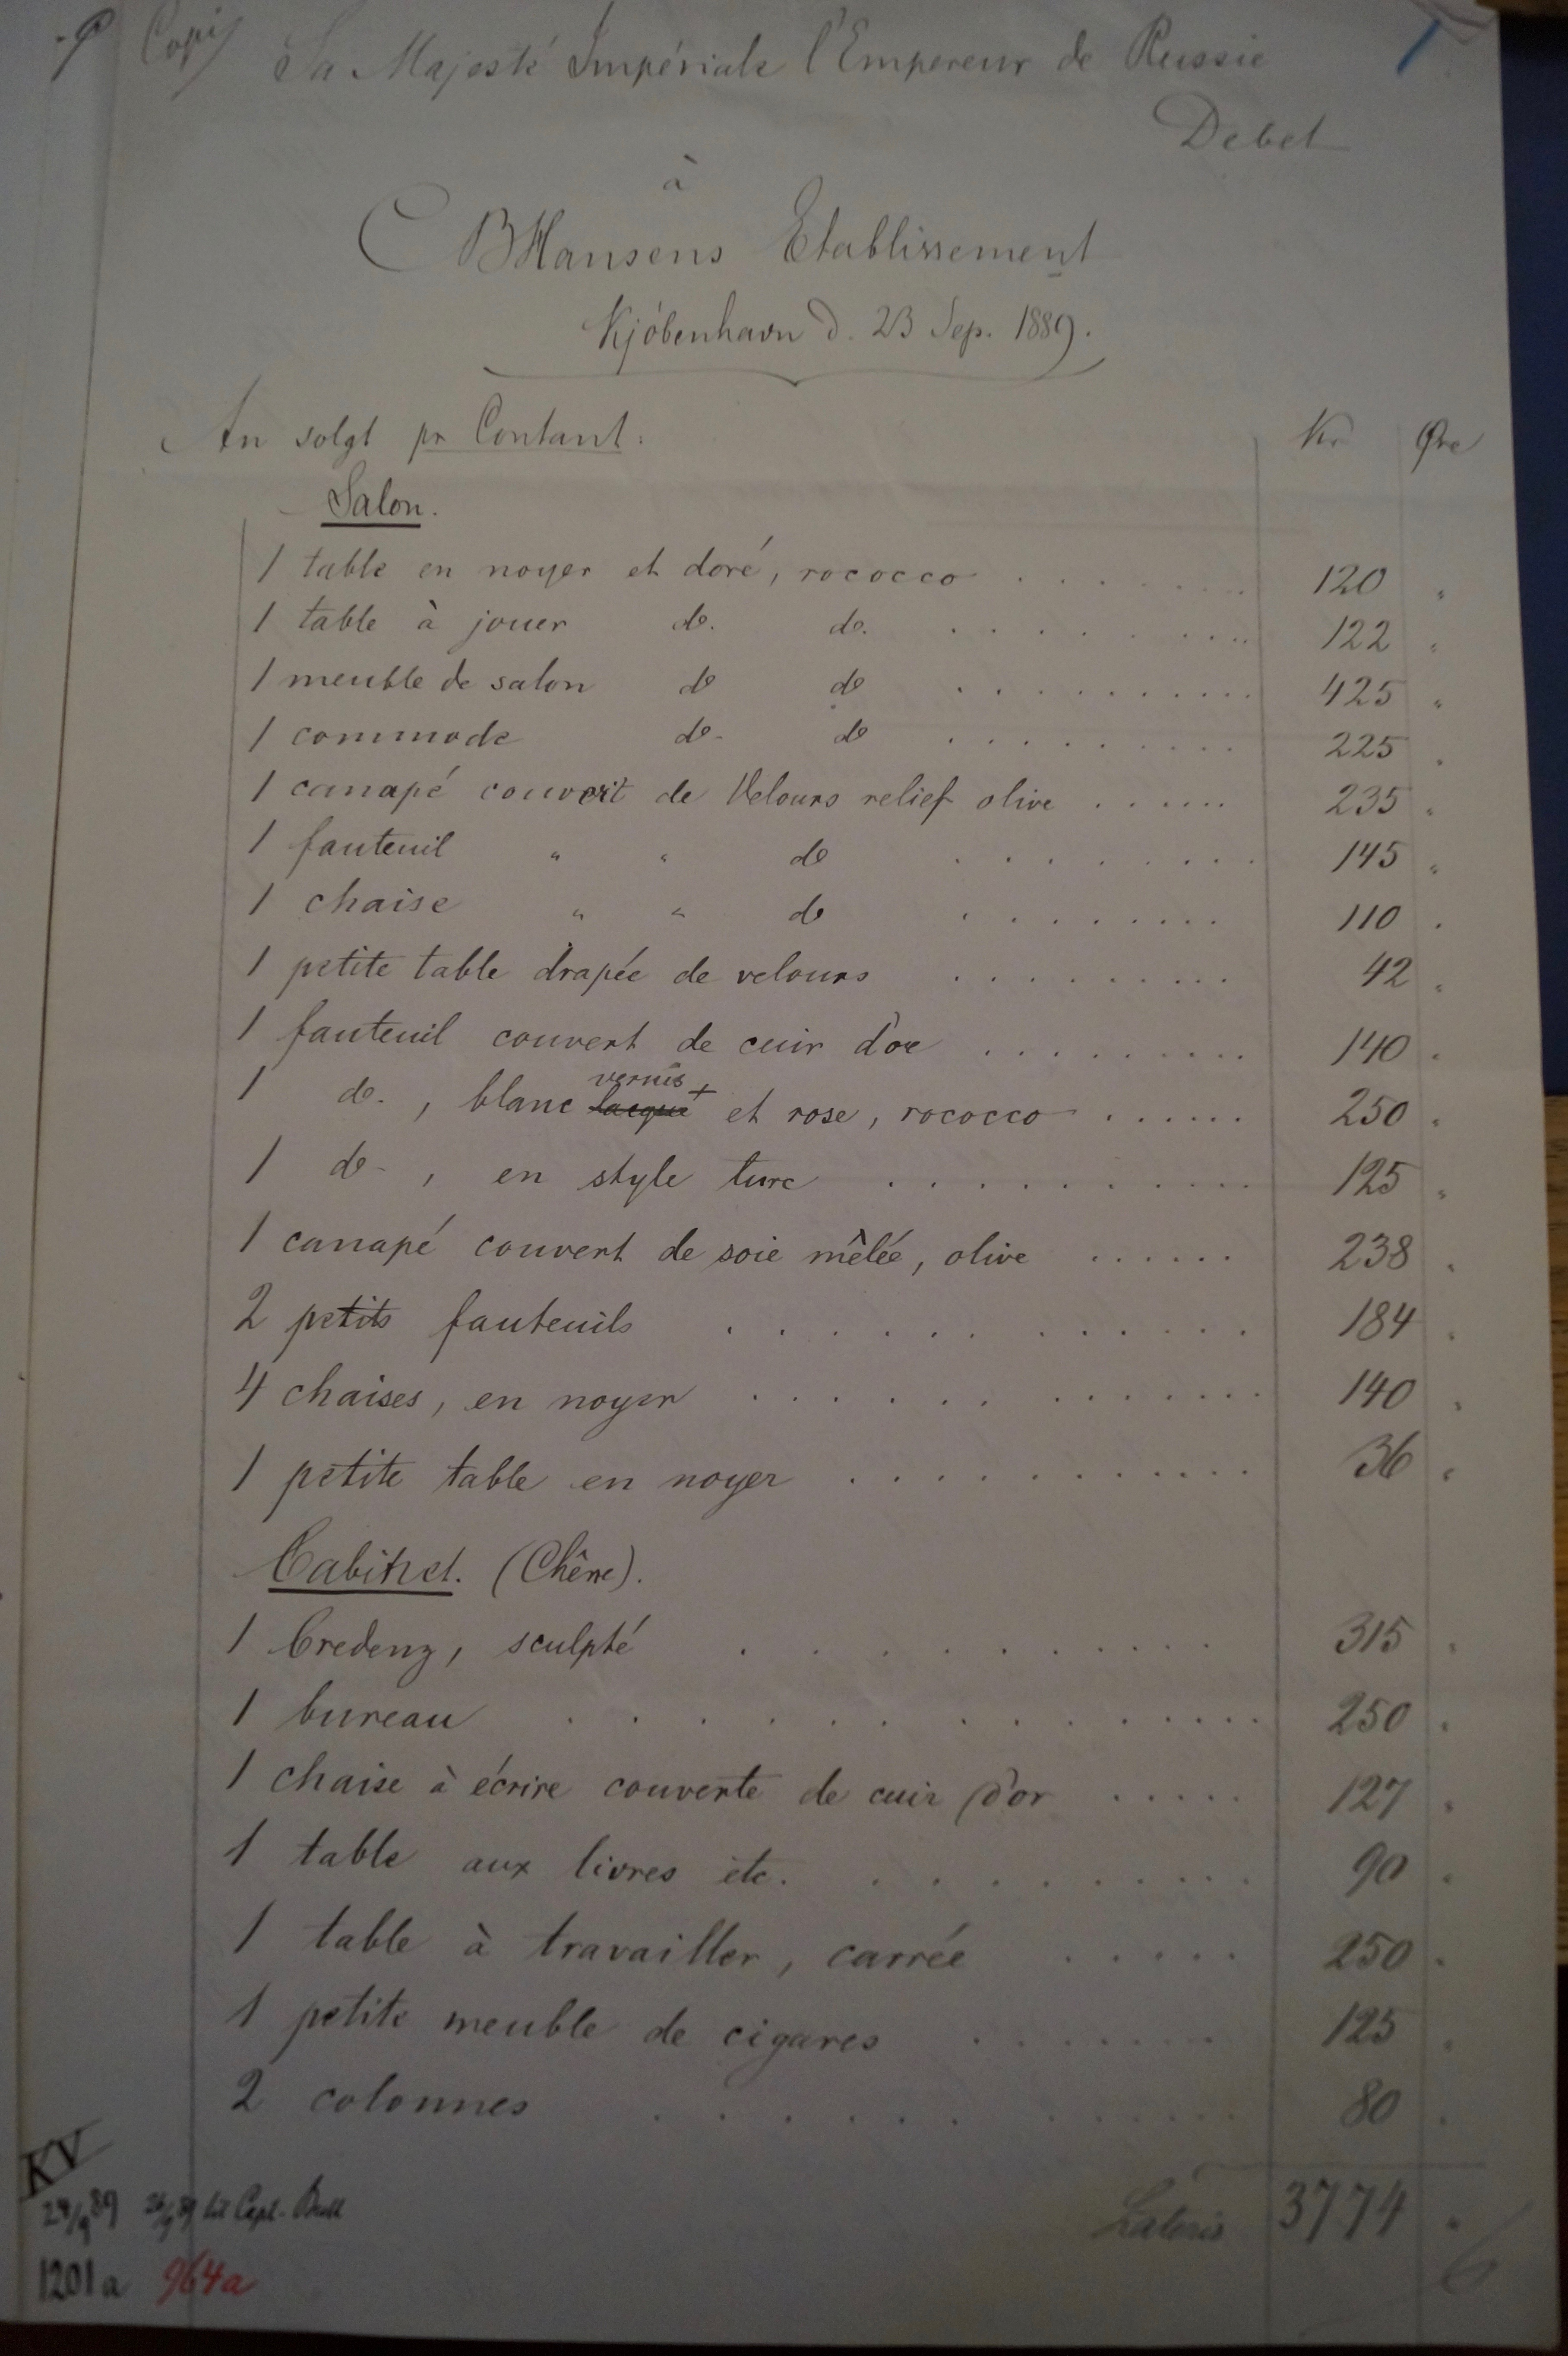 Copi
Sa Majesté Impériale l'Empereur de Russie
Debet
à
CBHansens Etablissement
Kjöbenhavn d. 23 Sep. 1889.
An solgt pr Contant: Kr Øre
Salon.
1 table en noyer et doré, rococco . . . . . . 120 "
1 table à jouer do. do. . . . . . . . 122 "
1 meuble de salon do do . . . . . . . . 425 "
1 commode do- do . . . . . . . 225 "
1 canapé couvert de Velours relief olive . . . . . . 235 "
1 fauteuil " " do . . . . . . . 145 "
1 chaise " " do . . . . . . . 110 "
1 petite table drapée de velours . . . . . . . 42 "
1 fauteuil couvert de cuir d'or . . . . . . . 140 "
vernis +
1 do. , blanc lacqué et rose, rococco . . . . . . 250 "
1 do- , en style turc . . . . . . . . 125 "
1 canapé couvert de soie mêlée, olive . . . . . . 238 "
2 petits fauteuils . . . . . . . . . 184 "
4 chaises, en noyer . . . . . . . . . 140 "
1 petite table en noyer . . . . . . . . 36 "
Cabinet. (Chêne).
1 Credenz, sculpté . . . . . . . . 315 "
1 bureau . . . . . . . . . . 250 "
1 chaise à écrire couverte de cuir d'or . . . . . 127 "
1 table aux livres etc. . . . . . . . 90 "
1 table à travailler, carrée . . . . . 250 "
1 petite meuble de cigares . . . . . . 125 "
2 colonnes . . . . . . . . . 80 "
Lateris 3774 "
KV
24/9 89 26/9 89 til Capt.
1201a 964a